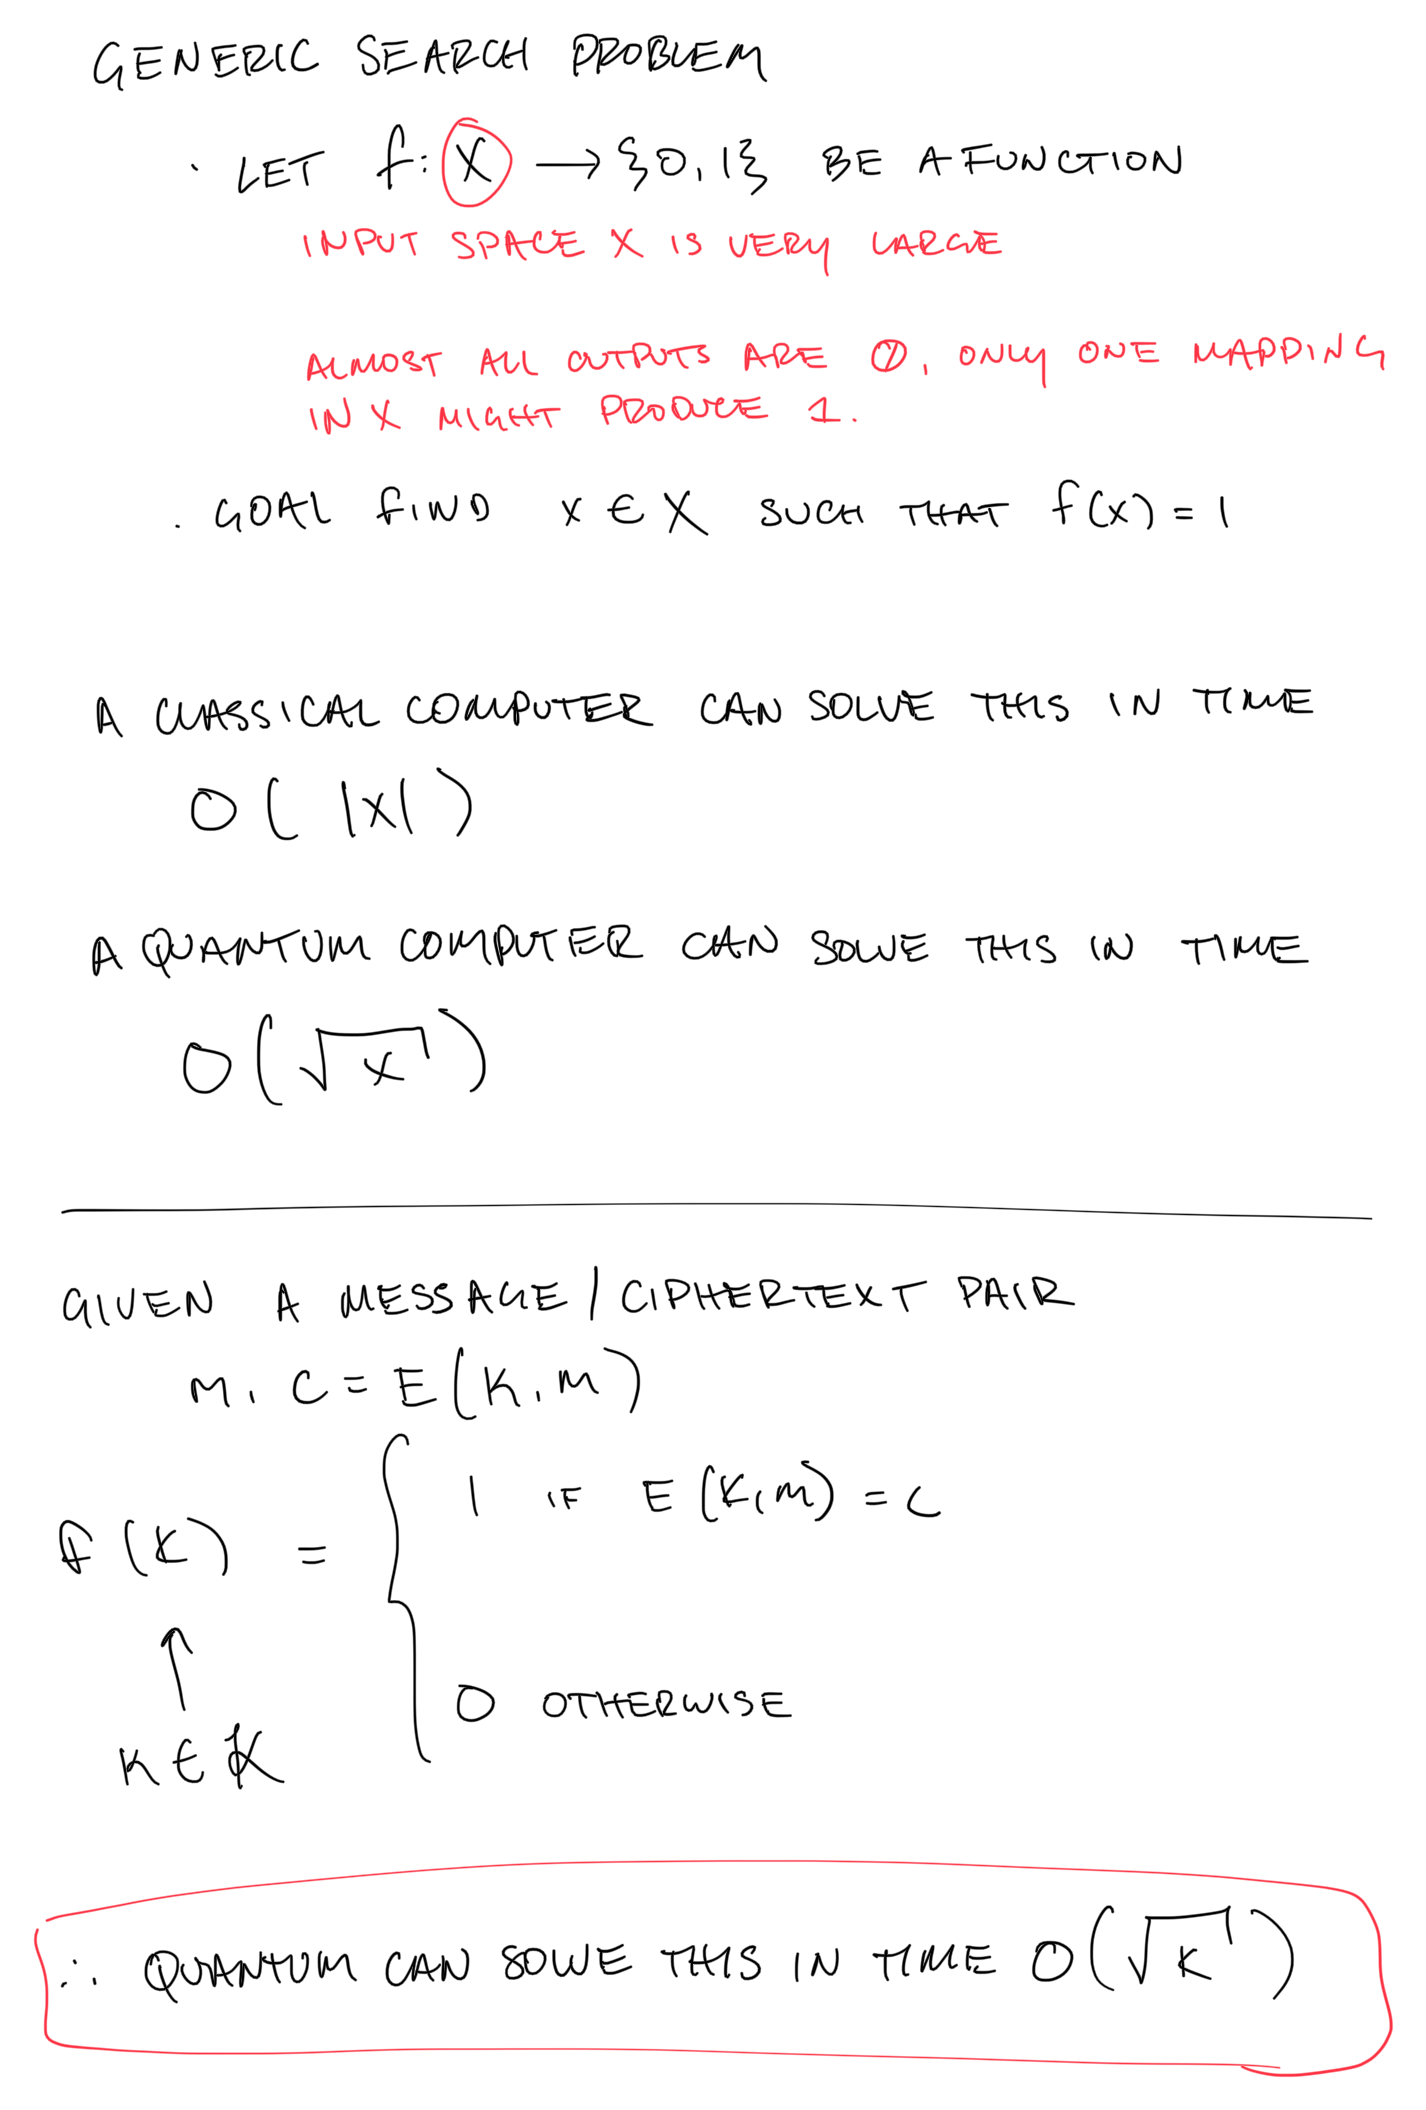 GENERIC SEARCH PROBLEM
· LET f: X → {0,1} BE A FUNCTION
INPUT SPACE X IS VERY LARGE
ALMOST ALL OUTPUTS ARE 0, ONLY ONE MAPPING
IN X MIGHT PRODUCE 1.
· GOAL FIND x ∈ X SUCH THAT f(x) = 1
A CLASSICAL COMPUTER CAN SOLVE THIS IN TIME
O( |X| )
A QUANTUM COMPUTER CAN SOLVE THIS IN TIME
O(√X)
GIVEN A MESSAGE / CIPHERTEXT PAIR
m, c = E(k,m)
f(k) = { 1 IF E(k,m) = c
0 OTHERWISE
↑
k ∈ K
∴ QUANTUM CAN SOLVE THIS IN TIME O(√K)